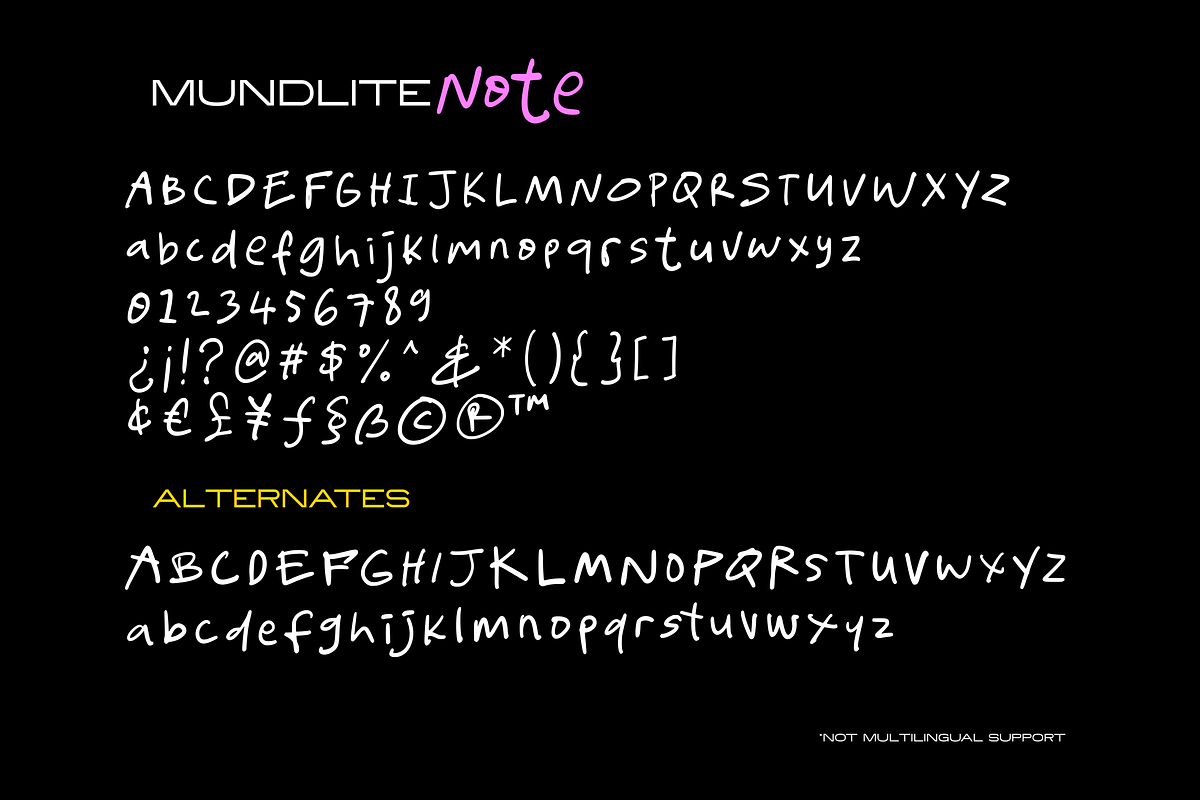 MUNDLITE Note
ABCDEFGHIJKLMNOPQRSTUVWXYZ
abcdefghijklmnopqrstuvwxyz
0123456789
¿¡!?@#$%^&*(){}[]
¢€£¥ƒ§ß©®™
ALTERNATES
ABCDEFGHIJKLMNOPQRSTUVWXYZ
abcdefghijklmnopqrstuvwxyz
*NOT MULTILINGUAL SUPPORT